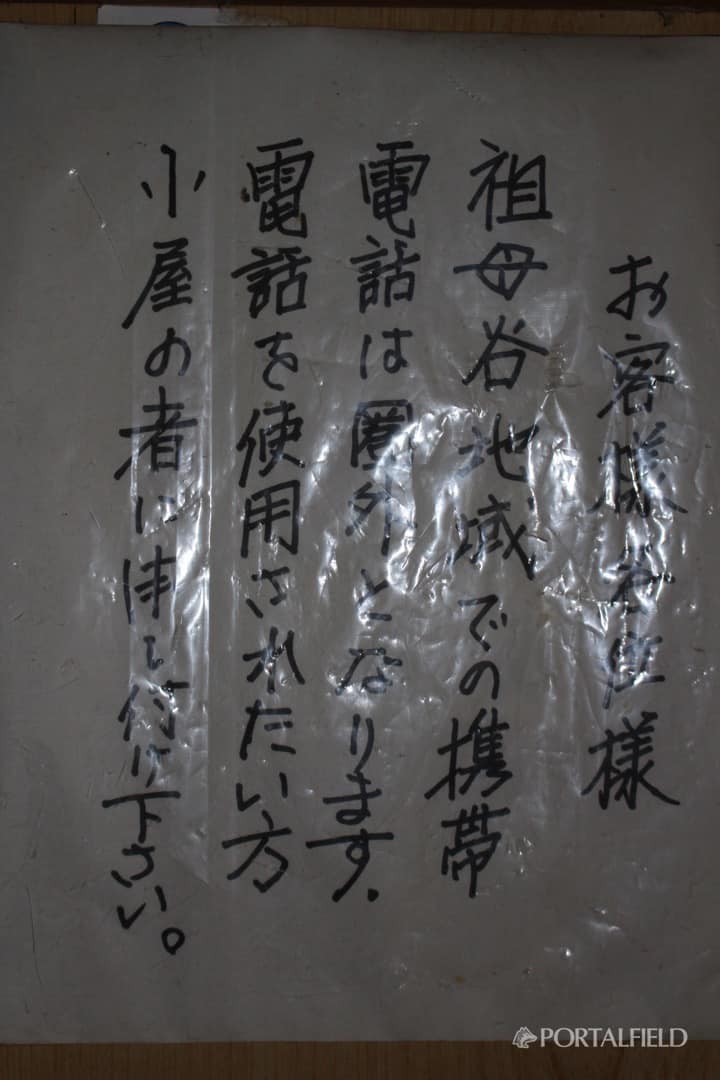 お客様各位様
祖母谷地域での携帯
電話は圏外となります.
電話を使用されたい方
小屋の者に申し付け下さい。
PORTALFIELD